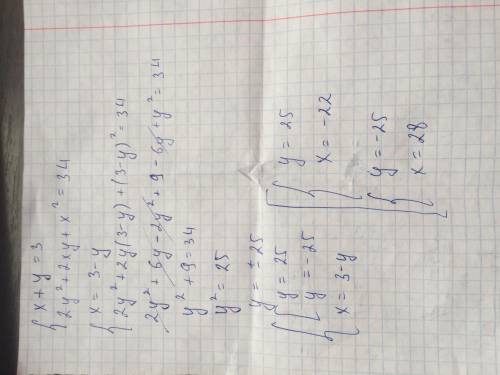 x + y = 3
2y² + 2xy + x² = 34
x = 3 - y
2y² + 2y(3-y) + (3-y)² = 34
2y² + 6y - 2y² + 9 - 6y + y² = 34
y² + 9 = 34
y² = 25
y = ± 25
y = 25
y = -25
x = 3-y
y = 25
x = -22
y = -25
x = 28